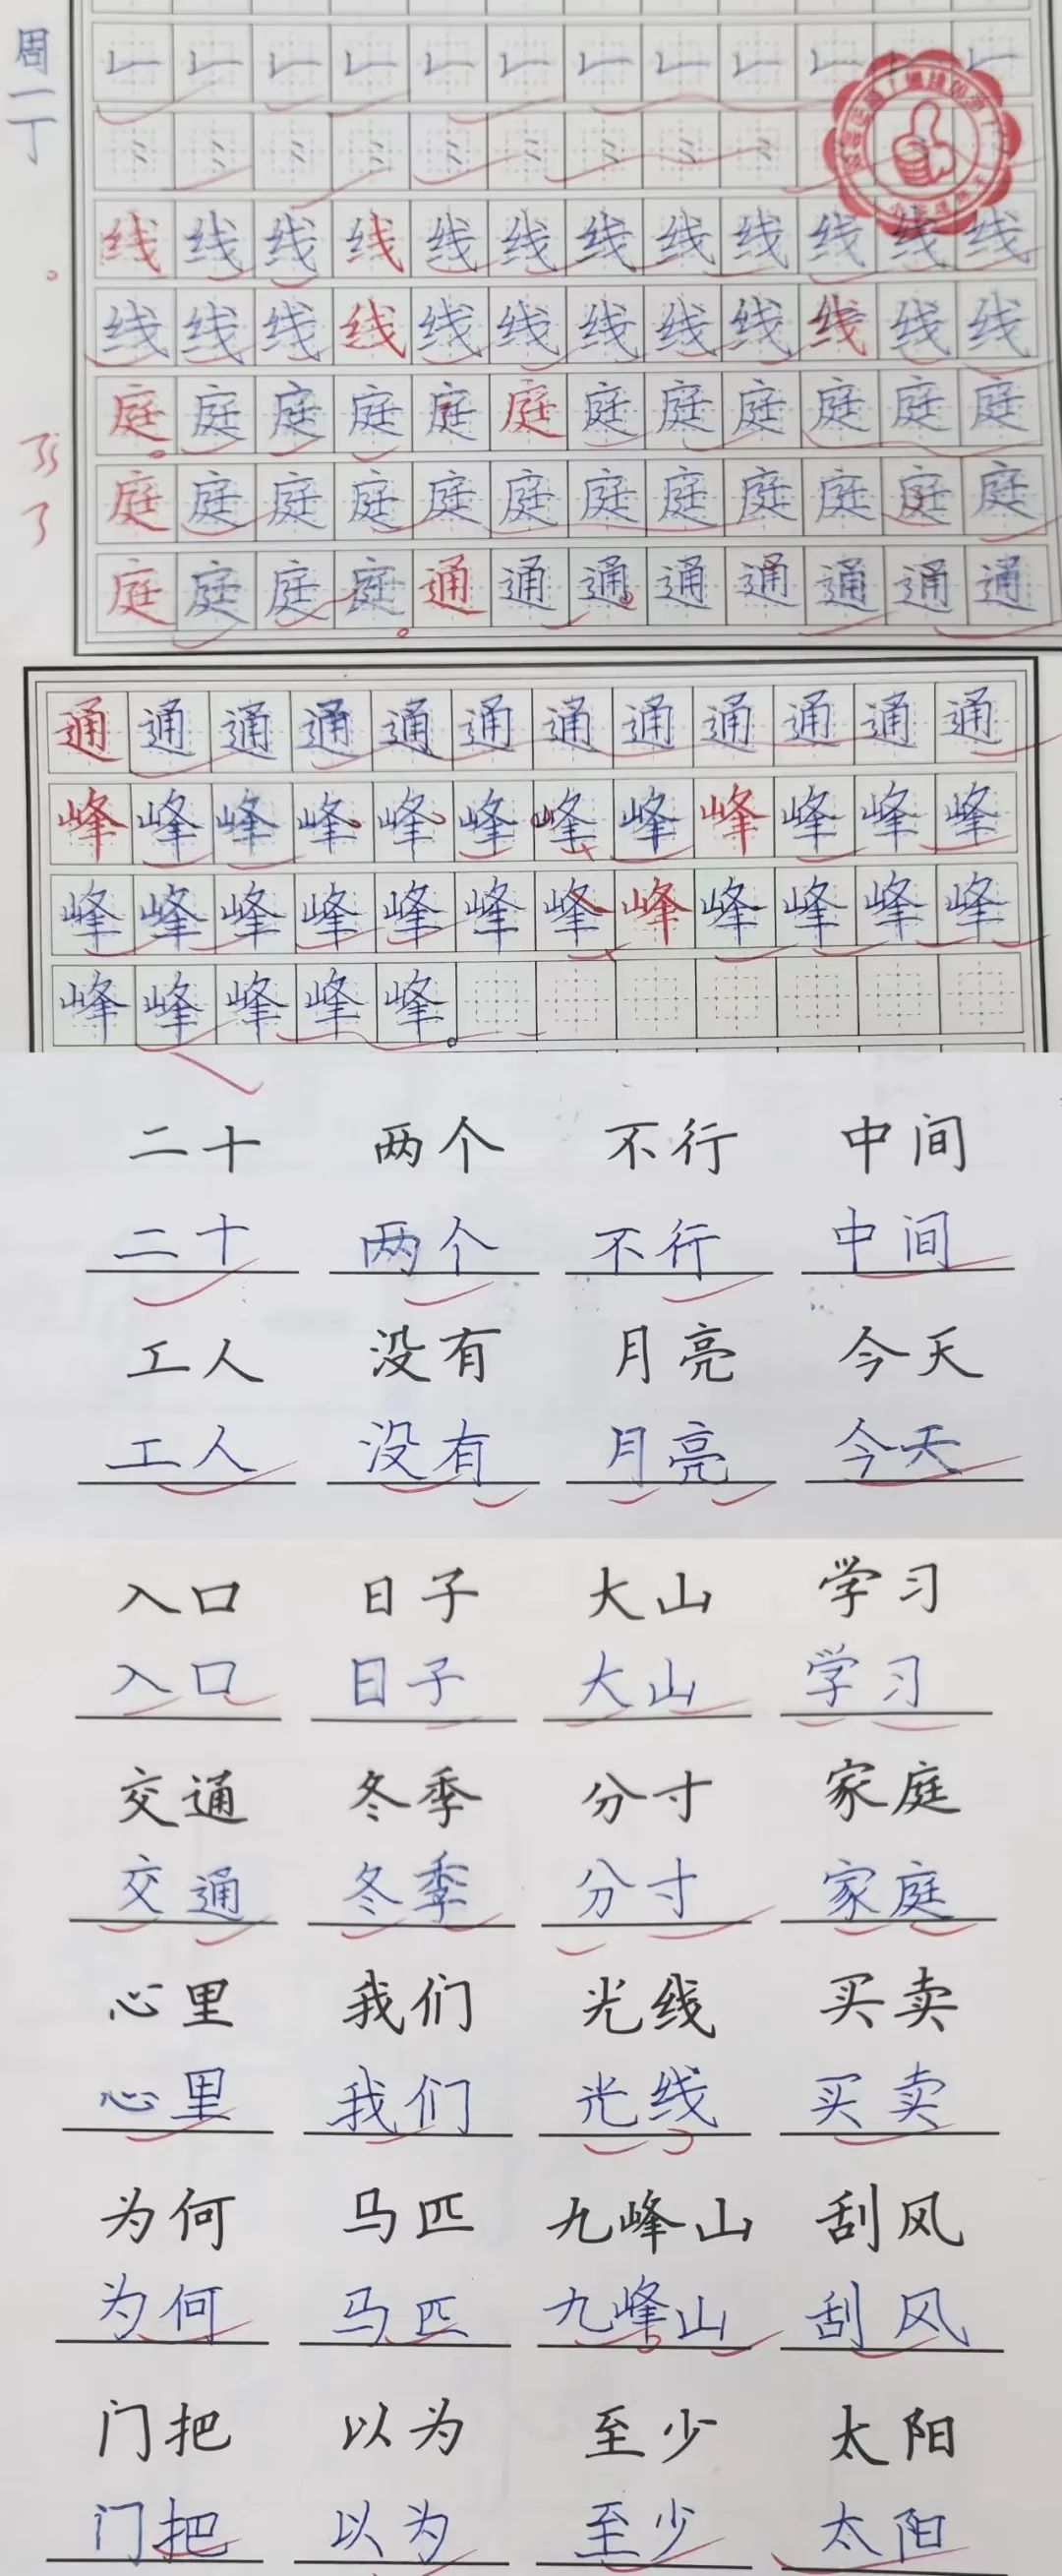 周一丁
线线线线线线线线线线线线
线线线线线线线线线线线线
庭庭庭庭庭庭庭庭庭庭庭庭
庭庭庭庭庭庭庭庭庭庭庭庭
庭庭庭庭通通通通通通通通
通通通通通通通通通通通通
峰峰峰峰峰峰峰峰峰峰峰峰
峰峰峰峰峰峰峰峰峰峰峰峰
峰峰峰峰峰
二十 两个 不行 中间
二十 两个 不行 中间
工人 没有 月亮 今天
工人 没有 月亮 今天
入口 日子 大山 学习
入口 日子 大山 学习
交通 冬季 分寸 家庭
交通 冬季 分寸 家庭
心里 我们 光线 买卖
心里 我们 光线 买卖
为何 马匹 九峰山 刮风
为何 马匹 九峰山 刮风
门把 以为 至少 太阳
门把 以为 至少 太阳